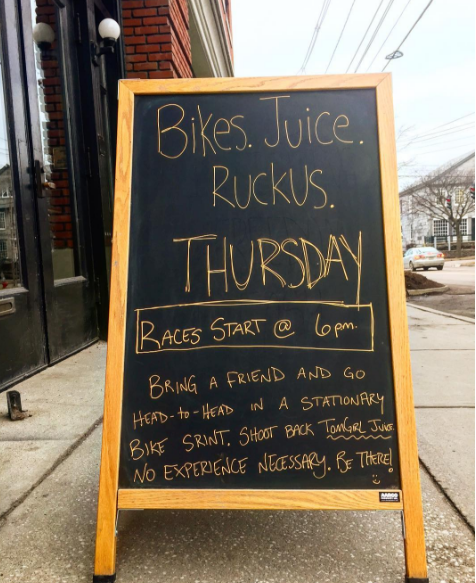 Bikes. Juice.
Ruckus.
THURSDAY
RACES START @ 6pm.
BRING A FRIEND AND GO
HEAD-to-HEAD IN A STATIONARY
BIKE SRINT. SHOOT BACK TOMGIRL JUICE.
NO EXPERIENCE NECESSARY. BE THERE!
AARCO